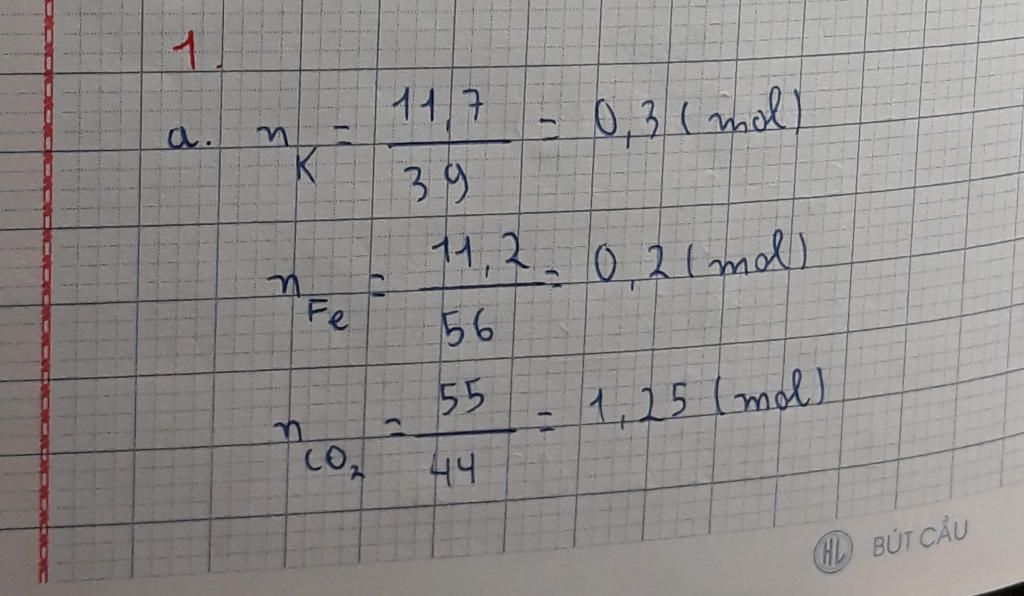 1.
a. n_K = 11,7 / 39 = 0,3 (mol)
n_Fe = 11,2 / 56 = 0,2 (mol)
n_CO₂ = 55 / 44 = 1,25 (mol)
HL BÚT CẨU